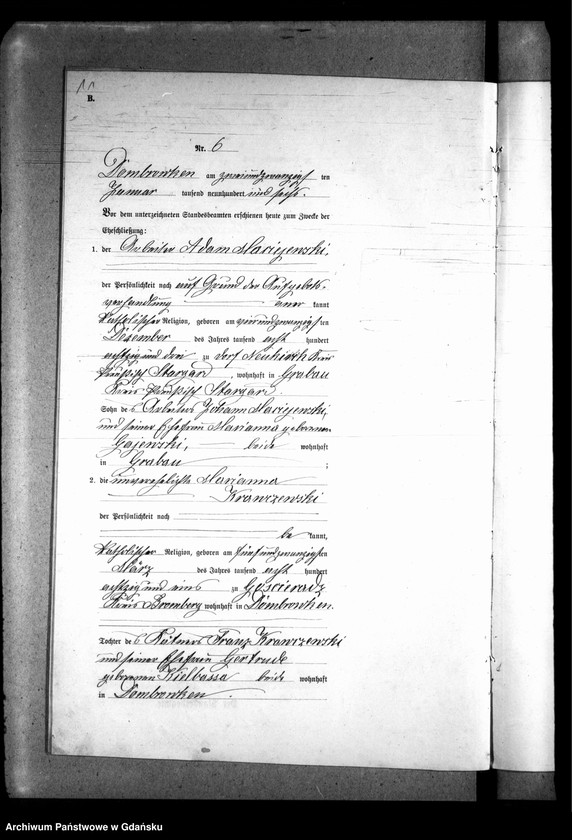 11
B.
Nr. 6
Dombrowken am zweiundzwanzigsten
Januar tausend neunhundert und sechs.
Vor dem unterzeichneten Standesbeamten erschienen heute zum Zwecke der
Eheschließung:
1. der Arbeiter Adam Maciejewski,
der Persönlichkeit nach auf Grund der Aufgebots-
verhandlung aner kannt
katholischer Religion, geboren am vierundzwanzigsten
Dezember des Jahres tausend acht hundert
achtzig und drei zu Dorf Neukirch Kreis
Preußisch Stargard, wohnhaft in Grabau
Kreis Preußisch Stargard.
Sohn des Arbeiters Johann Maciejewski,
und seiner Ehefrau Marianna geborenen
Gajewski, beide wohnhaft
in Grabau ;
2. die unverehelichte Marianna
Krawczewski
der Persönlichkeit nach
be kannt,
katholischer Religion, geboren am fünfundzwanzigsten
März des Jahres tausend acht hundert
achtzig und eins zu Goscieradz
Kreis Bromberg wohnhaft in Dombrowken.
Tochter des Kätners Franz Krawczewski
und seiner Ehefrau Gertrude
geborenen Kielbassa beide wohnhaft
in Dombrowken.
Archiwum Państwowe w Gdańsku